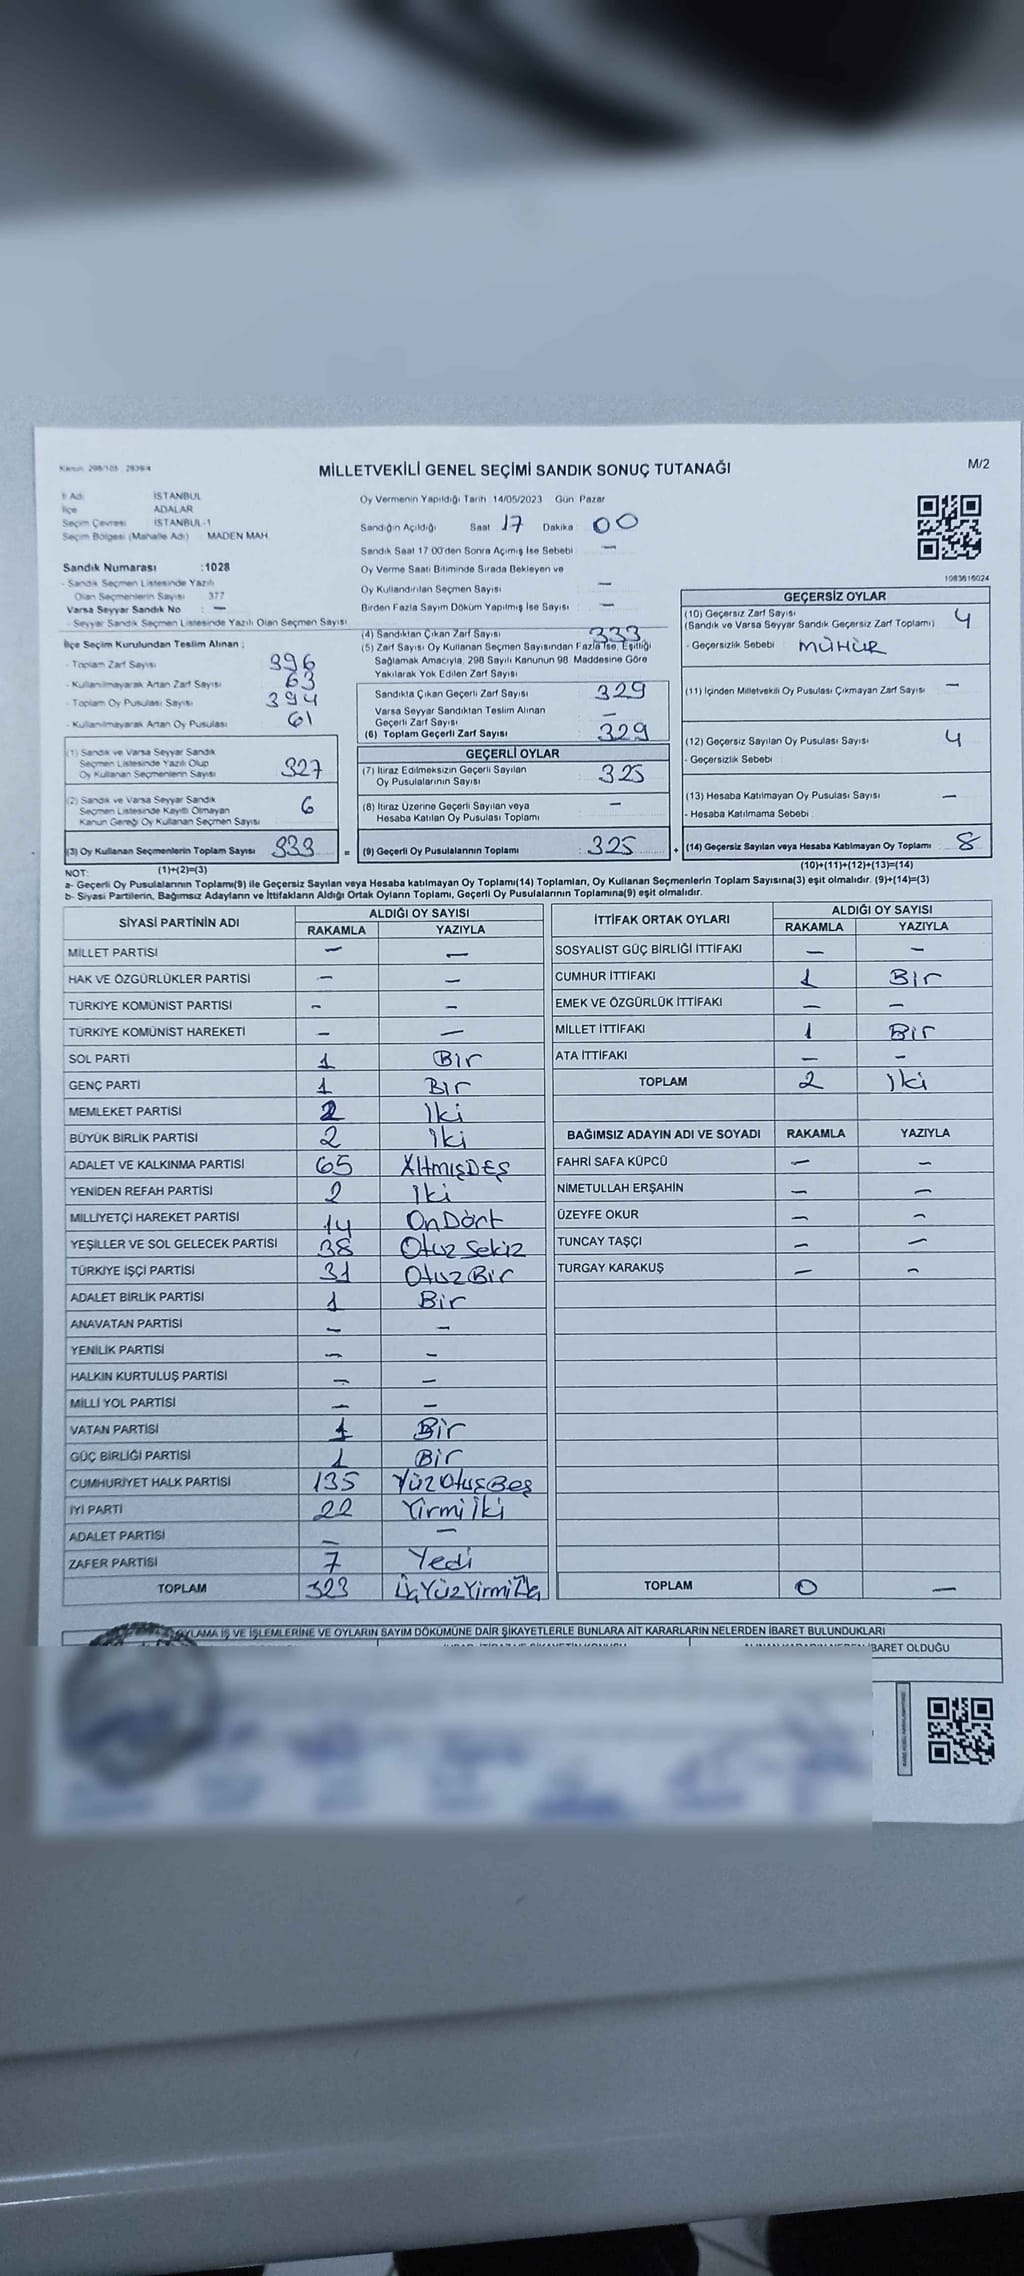 Kanun: 298/105 , 2839/4
MİLLETVEKİLİ GENEL SEÇİMİ SANDIK SONUÇ TUTANAĞI
M/2
İl Adı : İSTANBUL
İlçe : ADALAR
Seçim Çevresi : İSTANBUL-1
Seçim Bölgesi (Mahalle Adı) : MADEN MAH.
Sandık Numarası :1028
- Sandık Seçmen Listesinde Yazılı
Olan Seçmenlerin Sayısı : 377
Varsa Seyyar Sandık No : —
- Seyyar Sandık Seçmen Listesinde Yazılı Olan Seçmen Sayısı
Oy Vermenin Yapıldığı Tarih : 14/05/2023 Gün: Pazar
Sandığın Açıldığı Saat 17 Dakika 00
Sandık Saat 17.00'den Sonra Açılmış İse Sebebi : —
Oy Verme Saati Bitiminde Sırada Bekleyen ve
Oy Kullandırılan Seçmen Sayısı : —
Birden Fazla Sayım Döküm Yapılmış İse Sayısı : —
1083616024
İlçe Seçim Kurulundan Teslim Alınan ;
- Toplam Zarf Sayısı : 396
- Kullanılmayarak Artan Zarf Sayısı : 63
- Toplam Oy Pusulası Sayısı : 394
- Kullanılmayarak Artan Oy Pusulası : 61
(1) Sandık ve Varsa Seyyar Sandık
Seçmen Listesinde Yazılı Olup
Oy Kullanan Seçmenlerin Sayısı 327
(2) Sandık ve Varsa Seyyar Sandık
Seçmen Listesinde Kayıtlı Olmayan
Kanun Gereği Oy Kullanan Seçmen Sayısı 6
(3) Oy Kullanan Seçmenlerin Toplam Sayısı 333
(1)+(2)=(3)
(4) Sandıktan Çıkan Zarf Sayısı : 333
(5) Zarf Sayısı Oy Kullanan Seçmen Sayısından Fazla İse, Eşitliği
Sağlamak Amacıyla, 298 Sayılı Kanunun 98. Maddesine Göre
Yakılarak Yok Edilen Zarf Sayısı
Sandıkta Çıkan Geçerli Zarf Sayısı 329
Varsa Seyyar Sandıktan Teslim Alınan
Geçerli Zarf Sayısı —
(6) Toplam Geçerli Zarf Sayısı 329
GEÇERLİ OYLAR
(7) İtiraz Edilmeksizin Geçerli Sayılan
Oy Pusulalarının Sayısı 325
(8) İtiraz Üzerine Geçerli Sayılan veya
Hesaba Katılan Oy Pusulası Toplamı —
= (9) Geçerli Oy Pusulalarının Toplamı 325
GEÇERSİZ OYLAR
(10) Geçersiz Zarf Sayısı
(Sandık ve Varsa Seyyar Sandık Geçersiz Zarf Toplamı) 4
- Geçersizlik Sebebi : MÜHÜR
(11) İçinden Milletvekili Oy Pusulası Çıkmayan Zarf Sayısı —
(12) Geçersiz Sayılan Oy Pusulası Sayısı 4
- Geçersizlik Sebebi :
(13) Hesaba Katılmayan Oy Pusulası Sayısı —
- Hesaba Katılmama Sebebi :
+ (14) Geçersiz Sayılan veya Hesaba Katılmayan Oy Toplamı 8
(10)+(11)+(12)+(13)=(14)
NOT:
a- Geçerli Oy Pusulalarının Toplamı(9) ile Geçersiz Sayılan veya Hesaba katılmayan Oy Toplamı(14) Toplamları, Oy Kullanan Seçmenlerin Toplam Sayısına(3) eşit olmalıdır. (9)+(14)=(3)
b- Siyasi Partilerin, Bağımsız Adayların ve İttifakların Aldığı Ortak Oyların Toplamı, Geçerli Oy Pusulalarının Toplamına(9) eşit olmalıdır.
SİYASİ PARTİNİN ADI ALDIĞI OY SAYISI
RAKAMLA YAZIYLA
MİLLET PARTİSİ — —
HAK VE ÖZGÜRLÜKLER PARTİSİ — —
TÜRKİYE KOMÜNİST PARTİSİ — —
TÜRKİYE KOMÜNİST HAREKETİ — —
SOL PARTİ 1 Bir
GENÇ PARTİ 1 Bir
MEMLEKET PARTİSİ 2 İki
BÜYÜK BİRLİK PARTİSİ 2 İki
ADALET VE KALKINMA PARTİSİ 65 AltmışBEŞ
YENİDEN REFAH PARTİSİ 2 İki
MİLLİYETÇİ HAREKET PARTİSİ 14 OnDört
YEŞİLLER VE SOL GELECEK PARTİSİ 38 Otuz Sekiz
TÜRKİYE İŞÇİ PARTİSİ 31 OtuzBir
ADALET BİRLİK PARTİSİ 1 Bir
ANAVATAN PARTİSİ — —
YENİLİK PARTİSİ — —
HALKIN KURTULUŞ PARTİSİ — —
MİLLİ YOL PARTİSİ — —
VATAN PARTİSİ 1 Bir
GÜÇ BİRLİĞİ PARTİSİ 1 Bir
CUMHURİYET HALK PARTİSİ 135 YüzOtuzBeş
İYİ PARTİ 22 Yirmi İki
ADALET PARTİSİ — —
ZAFER PARTİSİ 7 Yedi
TOPLAM 323 ÜçYüzYirmiÜç
İTTİFAK ORTAK OYLARI ALDIĞI OY SAYISI
RAKAMLA YAZIYLA
SOSYALİST GÜÇ BİRLİĞİ İTTİFAKI — —
CUMHUR İTTİFAKI 1 Bir
EMEK VE ÖZGÜRLÜK İTTİFAKI — —
MİLLET İTTİFAKI 1 Bir
ATA İTTİFAKI — —
TOPLAM 2 İki
BAĞIMSIZ ADAYIN ADI VE SOYADI RAKAMLA YAZIYLA
FAHRİ SAFA KÜPCÜ — —
NİMETULLAH ERŞAHİN — —
ÜZEYFE OKUR — —
TUNCAY TAŞÇI — —
TURGAY KARAKUŞ — —
TOPLAM 0 —
OYLAMA İŞ VE İŞLEMLERİNE VE OYLARIN SAYIM DÖKÜMÜNE DAİR ŞİKAYETLERLE BUNLARA AİT KARARLARIN NELERDEN İBARET BULUNDUKLARI
İBARET OLDUĞU